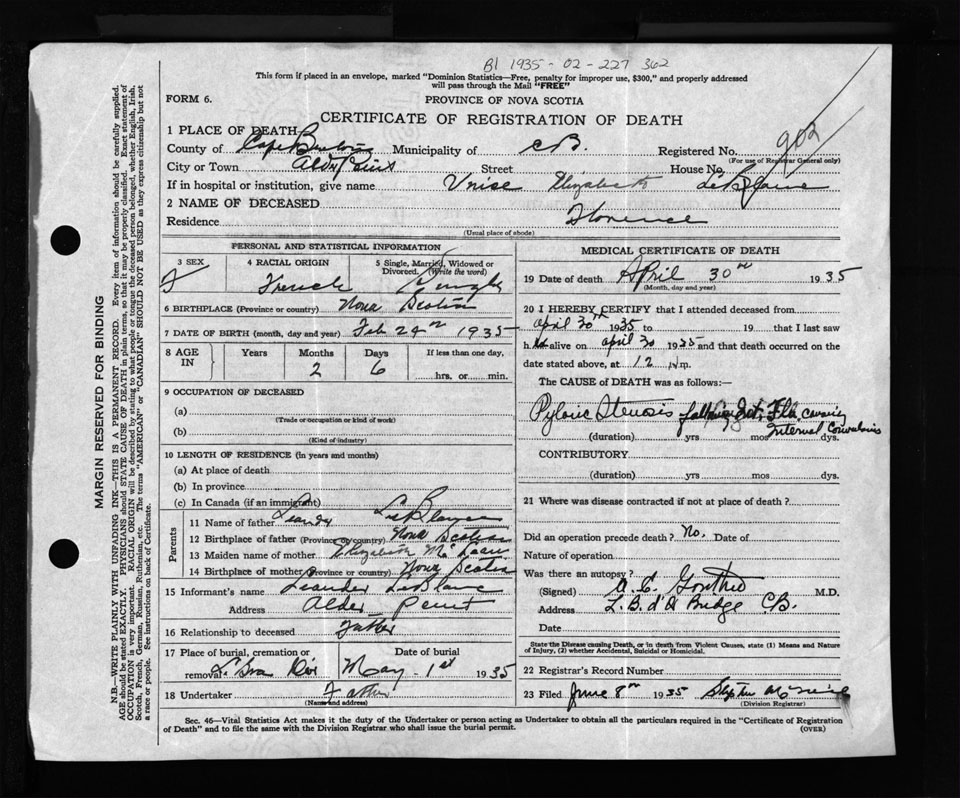 B1 1935-02-227 362
This form if placed in an envelope, marked "Dominion Statistics—Free, penalty for improper use, $300," and properly addressed
will pass through the Mail "FREE"
FORM 6.
PROVINCE OF NOVA SCOTIA
CERTIFICATE OF REGISTRATION OF DEATH
1 PLACE OF DEATH
County of Cape Breton Municipality of CB. Registered No. 902
(For use of Registrar General only)
City or Town Alder Street House No.
If in hospital or institution, give name Elizabeth
2 NAME OF DECEASED
Residence Florence
(Usual place of abode)
PERSONAL AND STATISTICAL INFORMATION
3 SEX F
4 RACIAL ORIGIN French
5 Single, Married, Widowed or Divorced. (Write the word) Single
6 BIRTHPLACE (Province or country) Nova Scotia
7 DATE OF BIRTH (month, day and year) Feb 24 1935
8 AGE IN Years Months 2 Days 6 If less than one day, hrs. or min.
9 OCCUPATION OF DECEASED
(a)
(Trade or occupation or kind of work)
(b)
(Kind of industry)
10 LENGTH OF RESIDENCE (In years and months)
(a) At place of death
(b) In province
(c) In Canada (if an immigrant)
Parents
11 Name of father
12 Birthplace of father (Province or country) Nova Scotia
13 Maiden name of mother Elizabeth
14 Birthplace of mother (Province or country) Nova Scotia
15 Informant's name Leander LeBlanc
Address Alder Point
16 Relationship to deceased Father
17 Place of burial, cremation or removal Date of burial May 1st 1935
18 Undertaker Father
(Name and address)
MEDICAL CERTIFICATE OF DEATH
19 Date of death April 30 1935
(Month, day and year)
20 I HEREBY CERTIFY that I attended deceased from
April 30th 1935 to 19 that I last saw
h alive on April 30 1935 and that death occurred on the
date stated above, at 12 m.
The CAUSE of DEATH was as follows:—
Pyloric Stenosis
Internal
(duration) yrs mos dys.
CONTRIBUTORY
(duration) yrs mos dys.
21 Where was disease contracted if not at place of death?
Did an operation precede death? No. Date of
Nature of operation
Was there an autopsy?
(Signed) M.D.
Address Bridge CB.
Date
State the Disease causing Death, or in death from Violent Causes, state (1) Means and Nature
of Injury, (2) whether Accidental, Suicidal or Homicidal.
22 Registrar's Record Number
23 Filed June 8th 1935 Stephen
(Division Registrar)
Sec. 46—Vital Statistics Act makes it the duty of the Undertaker or person acting as Undertaker to obtain all the particulars required in the "Certificate of Registration
of Death" and to file the same with the Division Registrar who shall issue the burial permit. (OVER)
MARGIN RESERVED FOR BINDING
N.B.—WRITE PLAINLY WITH UNFADING INK—THIS IS A PERMANENT RECORD. Every item of information should be carefully supplied.
AGE should be stated EXACTLY. PHYSICIANS should STATE CAUSE OF DEATH in plain terms, so that it may be properly classified. Exact statement of
OCCUPATION is very important. RACIAL ORIGIN will be described by stating to what people or tongue the deceased person belonged, whether English, Irish,
Scotch, French, German, Russian, Ruthenian, etc. The terms "AMERICAN" or "CANADIAN" SHOULD NOT BE USED as they express citizenship but not
a race or people. See instructions on back of Certificate.